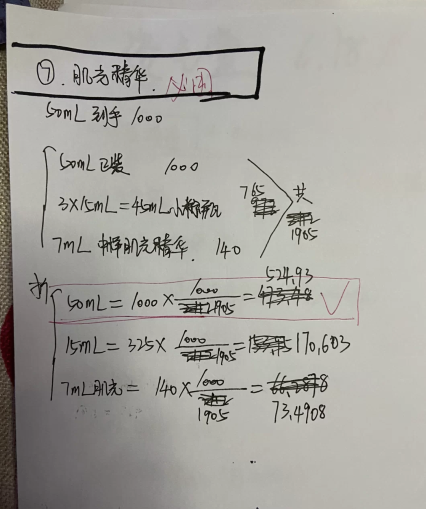 ⑦. 肌光精华.
50mL 到手 1000
50mL正装 1000
3×15mL=45mL小棕瓶 765
7mL 肌光精华. 140
共 1905
折
50mL = 1000 × 1000/1905 = 524.93 ✓
15mL = 325 × 1000/1905 = 170.603
7mL肌光 = 140 × 1000/1905 = 73.4908